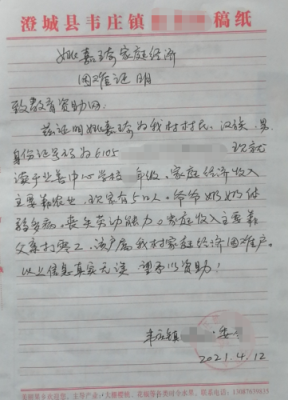 澄城县韦庄镇 稿纸
姚嘉琦家庭经济
困难证明
致教育资助网:
兹证明姚嘉琦为我村村民、汉族、男
身份证号码为6105 现就
读于业善中心学校 年级。家庭经济收入
主要靠农业,现家有5口人。爷爷奶奶体
弱多病,丧失劳动能力。家庭收入主要靠
父亲打零工,该户属我村家庭经济困难户。
以上信息真实无误 望予以资助!
韦庄镇 委
2021.4.12